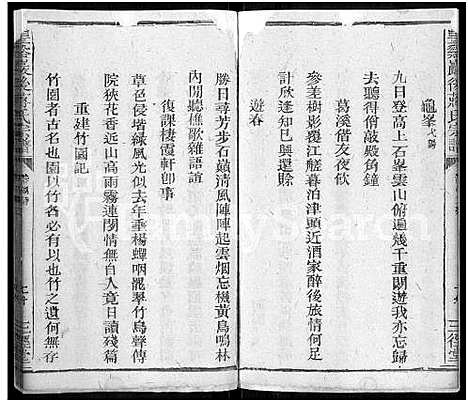 龜峯弋陽
九日登高上石峯雲山俯遍幾千重朗遊我亦忘歸
去聽得俏敲殿角鐘
葛溪偕友夜飲
參差樹影覆江艖暮泊津頭近酒家醉後旅情何足
計欣逢知已興還賒
遊春
勝日尋芳步石巔清風陣陣起雲烟忘機黃鳥鳴林
內閒聽樵歌雜語諠
復課棲霞軒卽事
草色侵堦綠風光似去年垂楊蟬咽罷翠竹鳥聲傳
院狹花香近山高雨霧連閉情無自入竟日讀殘篇
重建竹園記
竹園者古名也園以竹名必有以也竹之遺何無存
三徑堂
三徑堂